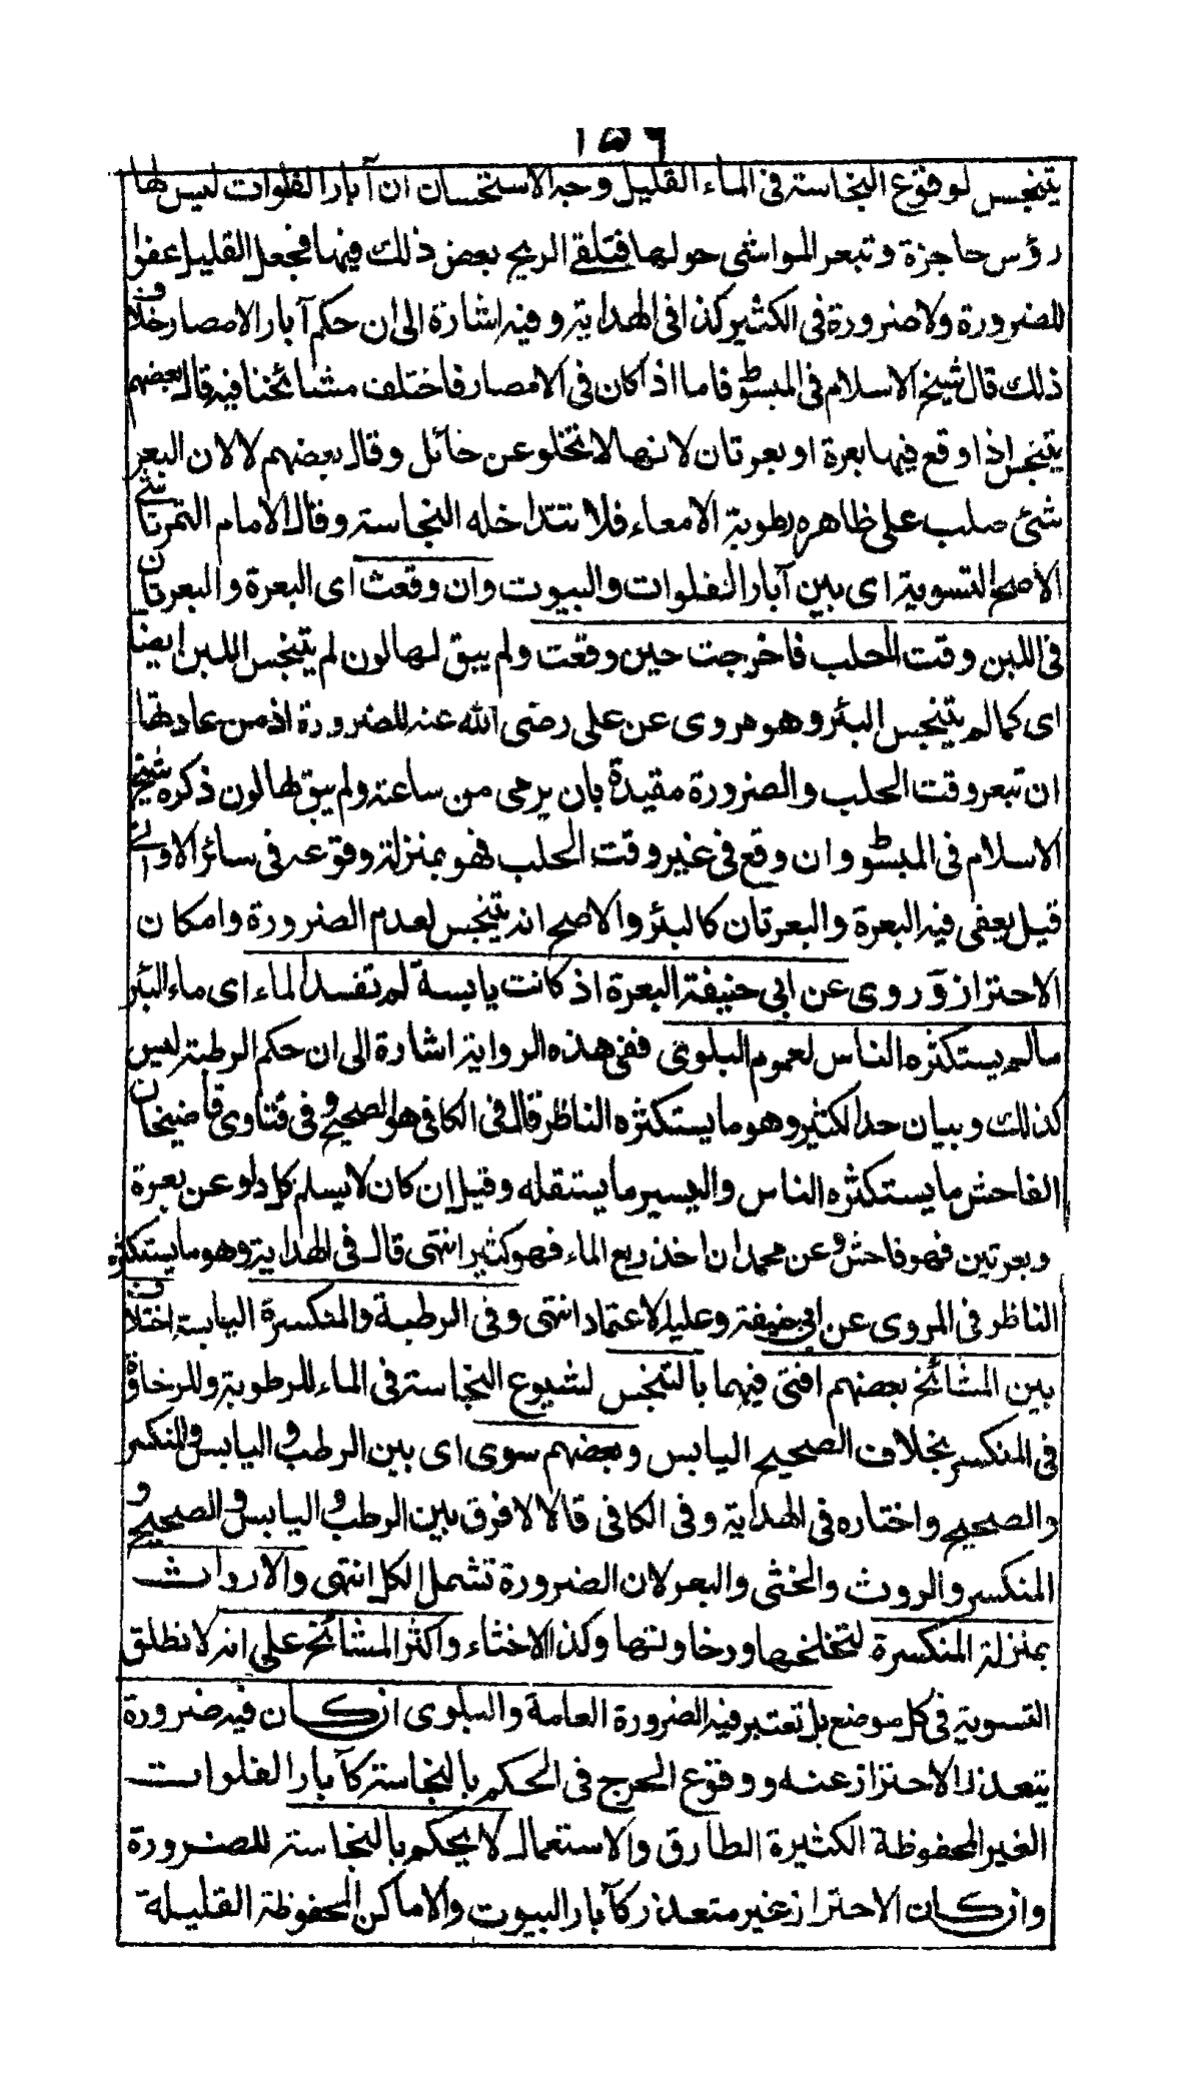 ١٥٦
يتنجس لوقوع النجاسة فى الماء القليل وجه الاستحسان ان آبار الفلوات ليس لها
رؤس حاجزة وتبعر المواشى حولها فتلقى الريح بعض ذلك فيها فجعل القليل عفوا
للضرورة ولا ضرورة فى الكثير كذا فى الهداية وفيه اشارة الى ان حكم آبار الامصار خلاف
ذلك قال شيخ الاسلام فى المبسوط فاما اذا كان فى الامصار فاختلف مشائخنا فيه قال بعضهم
يتنجس اذا وقع فيها بعرة او بعرتان لانها لا تخلو عن حائل وقال بعضهم لا لان البعر
شئ صلب على ظاهره رطوبة الامعاء فلا تتداخله النجاسة وقال الامام التمرتاشى
الاصح التسوية اى بين آبار الفلوات والبيوت وان وقعت اى البعرة والبعرتان
فى اللبن وقت الحلب فاخرجت حين وقعت ولم يبق لها لون لم يتنجس اللبن ايضا
اى كما لم يتنجس البئر وهو مروى عن على رضى الله عنه للضرورة اذ من عادتها
ان تبعر وقت الحلب والضرورة مقيدة بان يرمى من ساعته ولم يبق لها لون ذكره شيخ
الاسلام فى المبسوط وان وقع فى غير وقت الحلب فهو بمنزلة وقوعه فى سائر الاوانى
قيل يعفى فيه البعرة والبعرتان كالبئر والاصح انه يتنجس لعدم الضرورة وامكان
الاحتراز وروى عن ابى حنيفة البعرة اذ كانت يابسة لم تفسد الماء اى ماء البئر
مالم يستكثره الناس لعموم البلوى ففى هذه الرواية اشارة الى ان حكم الرطبة ليس
كذلك وبيان حد الكثير وهو ما يستكثره الناظر قال فى الكافى هو الصحيح وفى فتاوى قاضيخان
الفاحش ما يستكثره الناس واليسير ما يستقله وقيل ان كان لا يسلم كل دلو عن بعرة
وبعرتين فهو فاحش وعن محمد ان اخذ ربع الماء فهو كثير انتهى قال فى الهداية وهو ما يستكثره
الناظر فى المروى عن ابى حنيفة وعليه الاعتماد انتهى وفى الرطبة والمنكسرة اليابسة اختلاف
بين المشائخ بعضهم افتى فيهما بالتنجس لشيوع النجاسة فى الماء للرطوبة وللرخاوة
فى المنكسر بخلاف الصحيح اليابس وبعضهم سوى اى بين الرطب واليابس والمنكسر
والصحيح واختاره فى الهداية وفى الكافى قالا لا فرق بين الرطب واليابس والصحيح و
المنكسر والروث والخثى والبعر لان الضرورة تشمل الكل انتهى والارواث
بمنزلة المنكسرة لتخلخلها ورخاوتها وكذا الاخثاء واكثر المشائخ على انه لا تطلق
التسوية فى كل موضع بل تعتبر فيه الضرورة العامة والبلوى ان كان فيه ضرورة
يتعذر الاحتراز عنه ووقوع الحرج فى الحكم بالنجاسة كآبار الفلوات
الغير المحفوظة الكثيرة الطارق والاستعمال لا يحكم بالنجاسة للضرورة
وان كان الاحتراز غير متعذر كآبار البيوت والاماكن المحفوظة القليلة